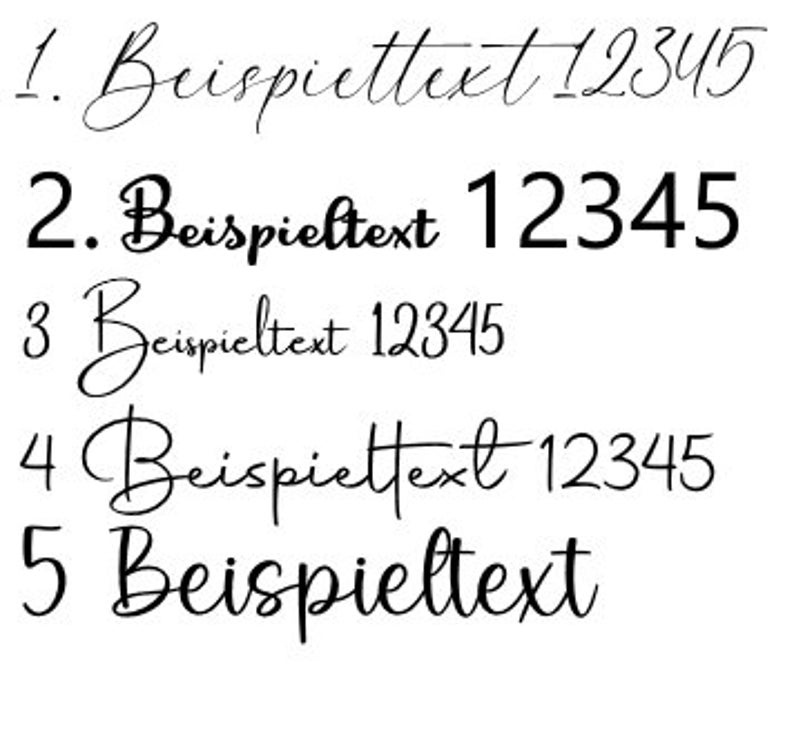 1. Beispieltext 12345
2. Beispieltext 12345
3 Beispieltext 12345
4 Beispieltext 12345
5 Beispieltext